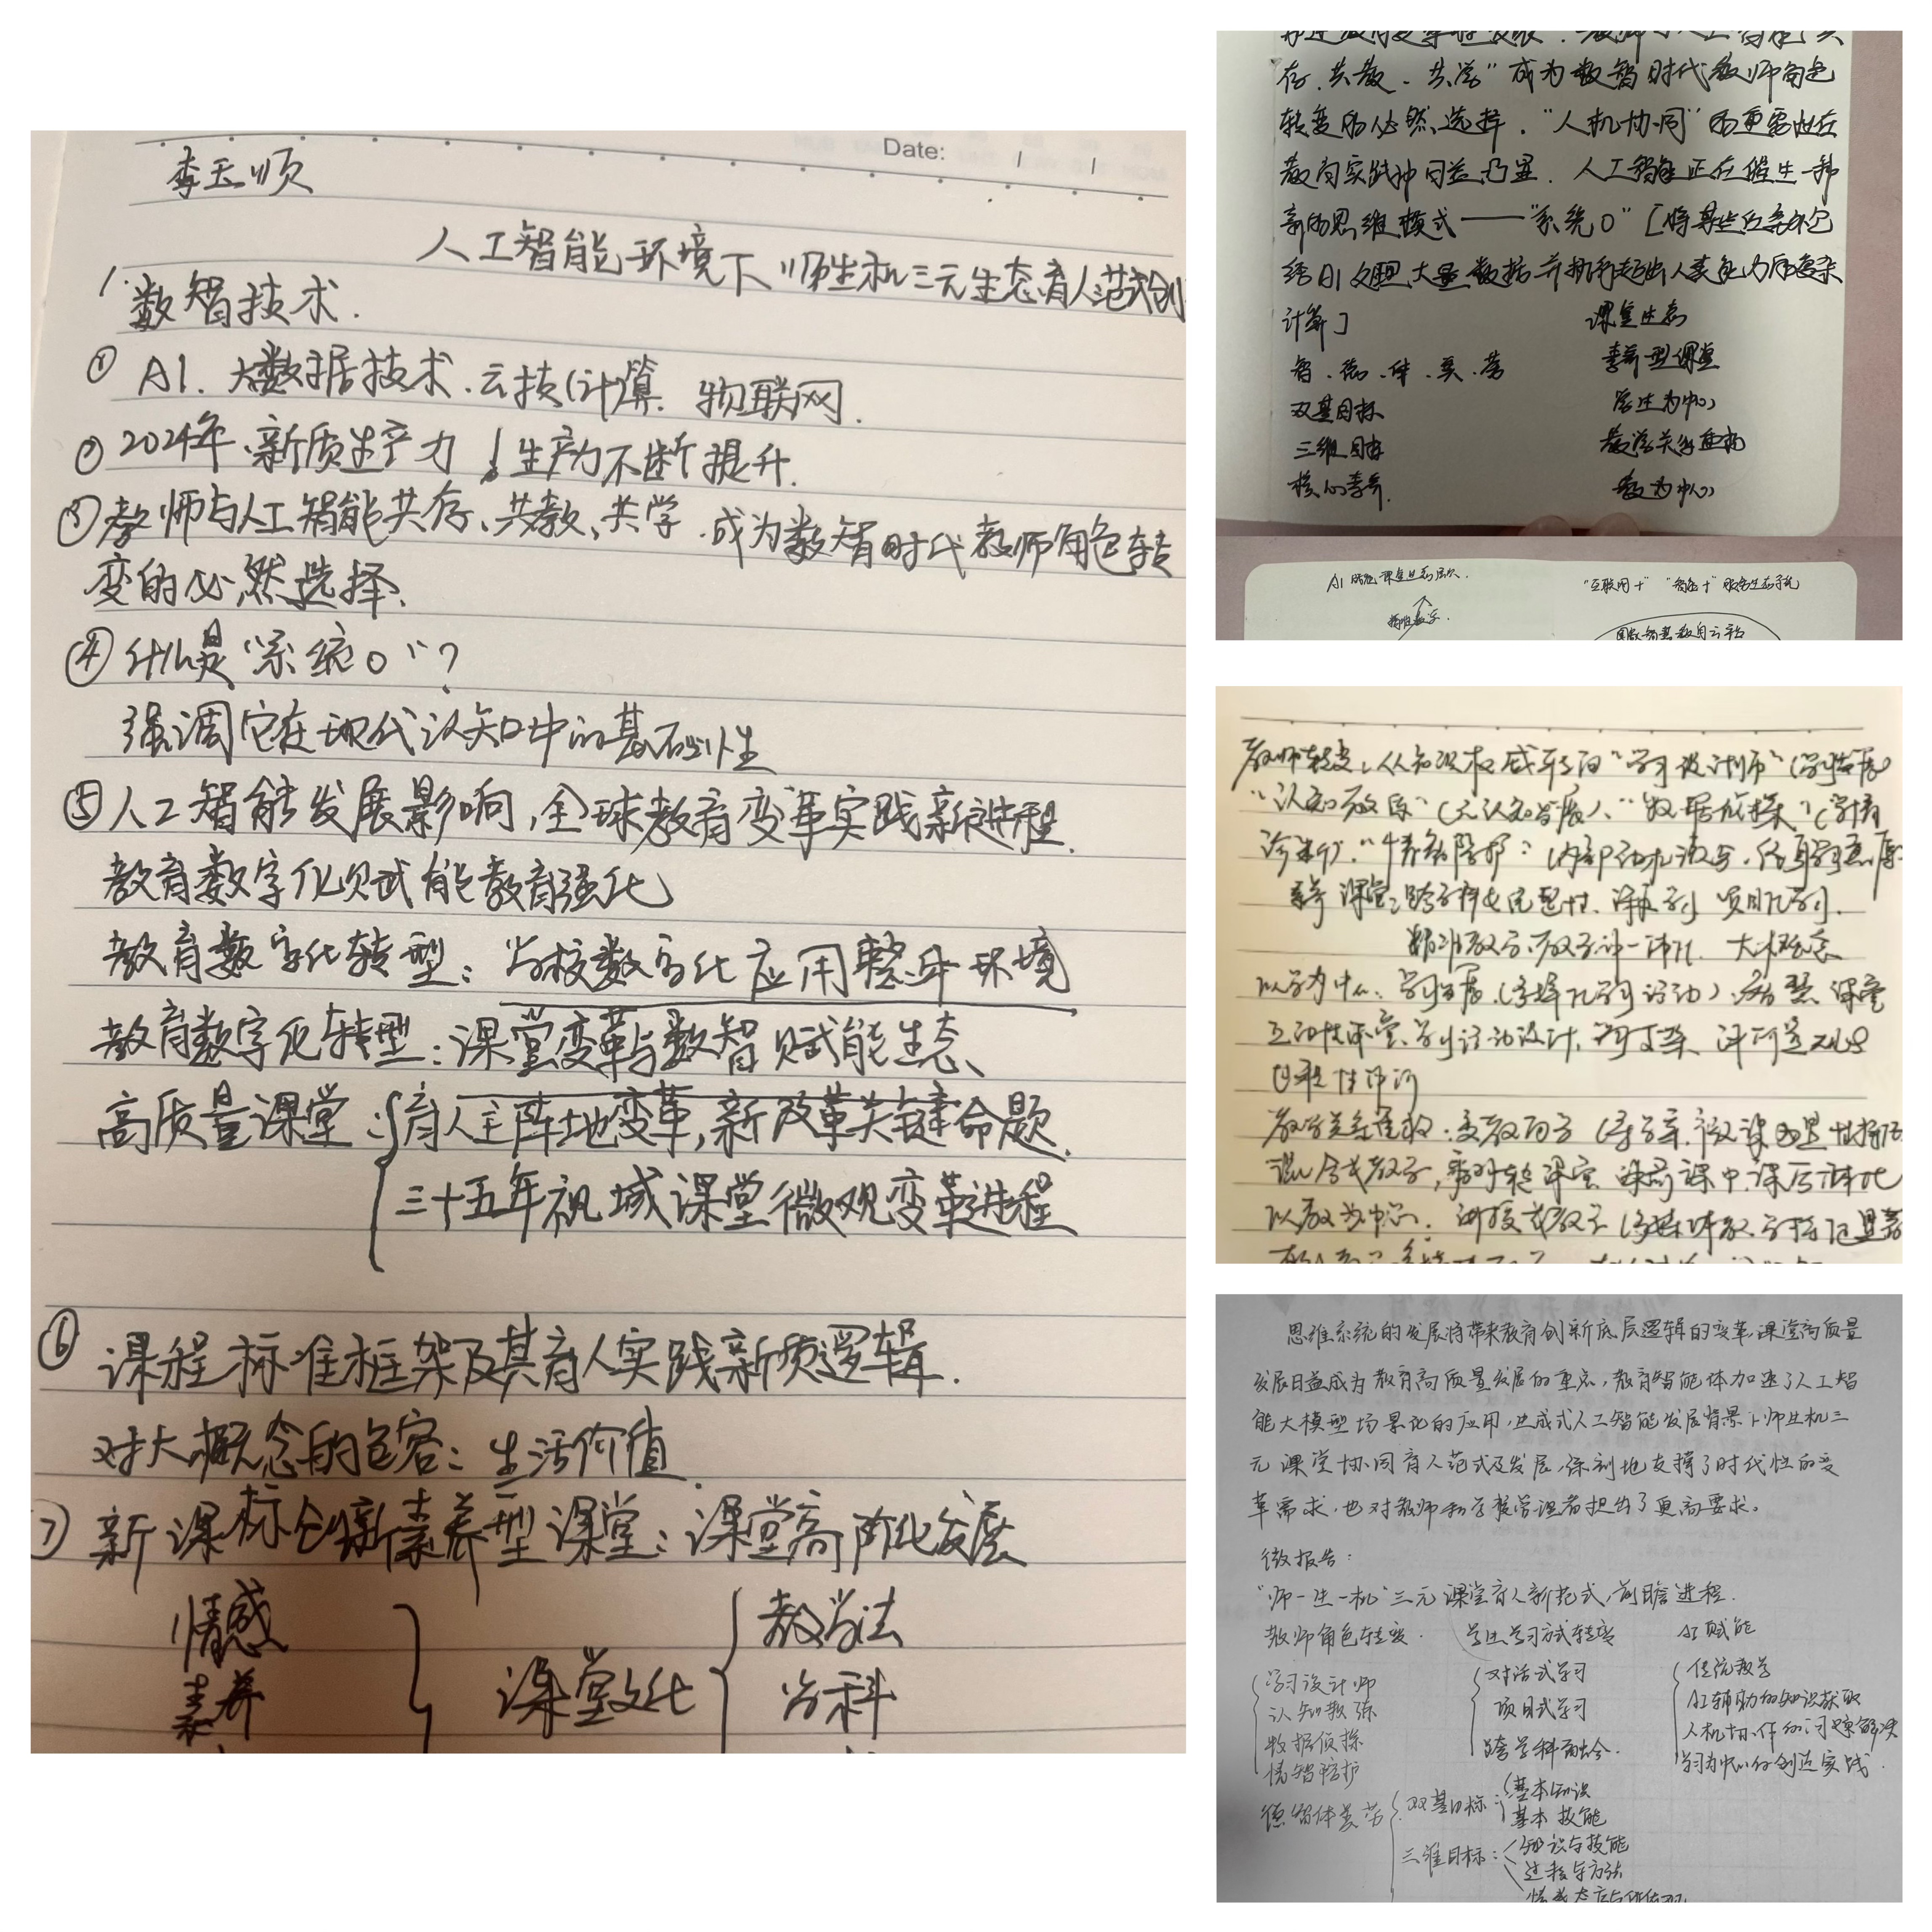 Date:
李玉顺
人工智能环境下师生机三元生态育人范式创
1.
数智技术.
① AI. 大数据技术.云技(计算. 物联网.
② 2024年.新质生产力 生产力不断提升.
③ 教师与人工智能共存、共教、共学.成为数智时代教师角色转
变的必然选择.
④ 什么是“系统0”?
强调它在现代认知中的基础性
⑤ 人工智能发展影响,全球教育变革实践新进程.
教育数字化赋能教育强化
教育数字化转型: 学校数字化应用整年环境
教育数字化转型:课堂变革与数智赋能生态、
高质量课堂: 育人主阵地变革,新改革关键命题.
三十五年视域课堂微观变革进程
⑥ 课程标准框架及其育人实践新质逻辑.
对大概念的包容: 生活价值.
7) 新课标创新素养型课堂:课堂高阶化发展
情感
素养
课堂文化
教学法
学科
存.共教.共学”成为数智时代教师角色
转变的必然选择.“人机协同”的重要性在
教育实践中日益凸显. 人工智能正在催生一种
新的思维模式——“系统0”[将某些任务外包
给AI处理大量数据并执行超出人类能力的复杂
计算]
课堂生态
智.德.体.美.劳
素养型课堂
双基目标
学生为中心
三维目标
教学关系重构
核心素养.
教为中心
AI赋能课堂生态层次.
“互联网+” “智能+”服务生态手机
精准教学.
国家智慧教育云平台
教师转变:从知识权威转向“学习设计师”(学习发展)
“认知教练”(元认知发展)、“数据侦探”(学情
诊断).“情智防护”:内部动机激活.
素养课堂:跨学科 项目化学习.
精准教学,教学评一体化. 大概念
以学为中心、学习发展.(多样化学习活动).智慧课堂
互动性课堂.学习活动设计.
过程性评价
教学关系重构.变教为学(导学案.微课
混合式教学,翻转课堂 课前课中.课后一体化
以教为中心. 讲授式教学(多媒体教学
思维系统的发展将带来教育创新底层逻辑的变革.课堂高质量
发展日益成为教育高质量发展的重点,教育智能体加速了人工智
能大模型场景化的应用,生成式人工智能发展背景下师生机三
元课堂协同育人范式及发展,深刻地支撑了时代性的变
革需求,也对教师和学校管理者担出了更高要求。
微报告:
“师-生-机”三元课堂育人新范式,前瞻进程.
教师角色转变. 学生学习方式转变 AI赋能
学习设计师
认知教练
数据侦探
情智防护
对话式学习
项目式学习
跨学科融合.
传统教学
AI辅助的知识获取
人机协作的问题解决
学习为中心的创造实践.
德智体美劳
双基目标:
基本知识
基本技能
三维目标:
知识与技能
过程与方法
情感态度与价值观